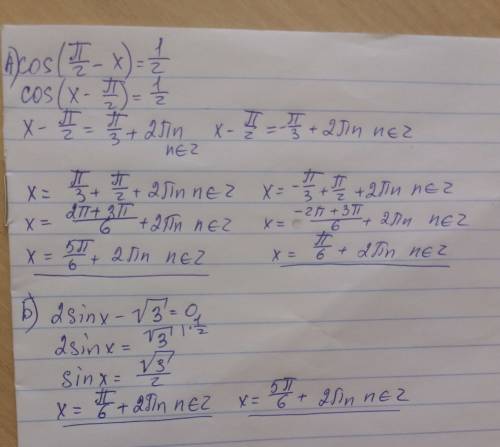 А) cos(π/2 - x) = 1/2
cos(x - π/2) = 1/2
x - π/2 = π/3 + 2πn n∈z x - π/2 = -π/3 + 2πn n∈z
x = π/3 + π/2 + 2πn n∈z x = -π/3 + π/2 + 2πn n∈z
x = (2π + 3π)/6 + 2πn n∈z x = (-2π + 3π)/6 + 2πn n∈z
x = 5π/6 + 2πn n∈z x = π/6 + 2πn n∈z
Б) 2sinx - √3 = 0
2sinx = √3 | · 1/2
sinx = √3/2
x = π/6 + 2πn n∈z x = 5π/6 + 2πn n∈z